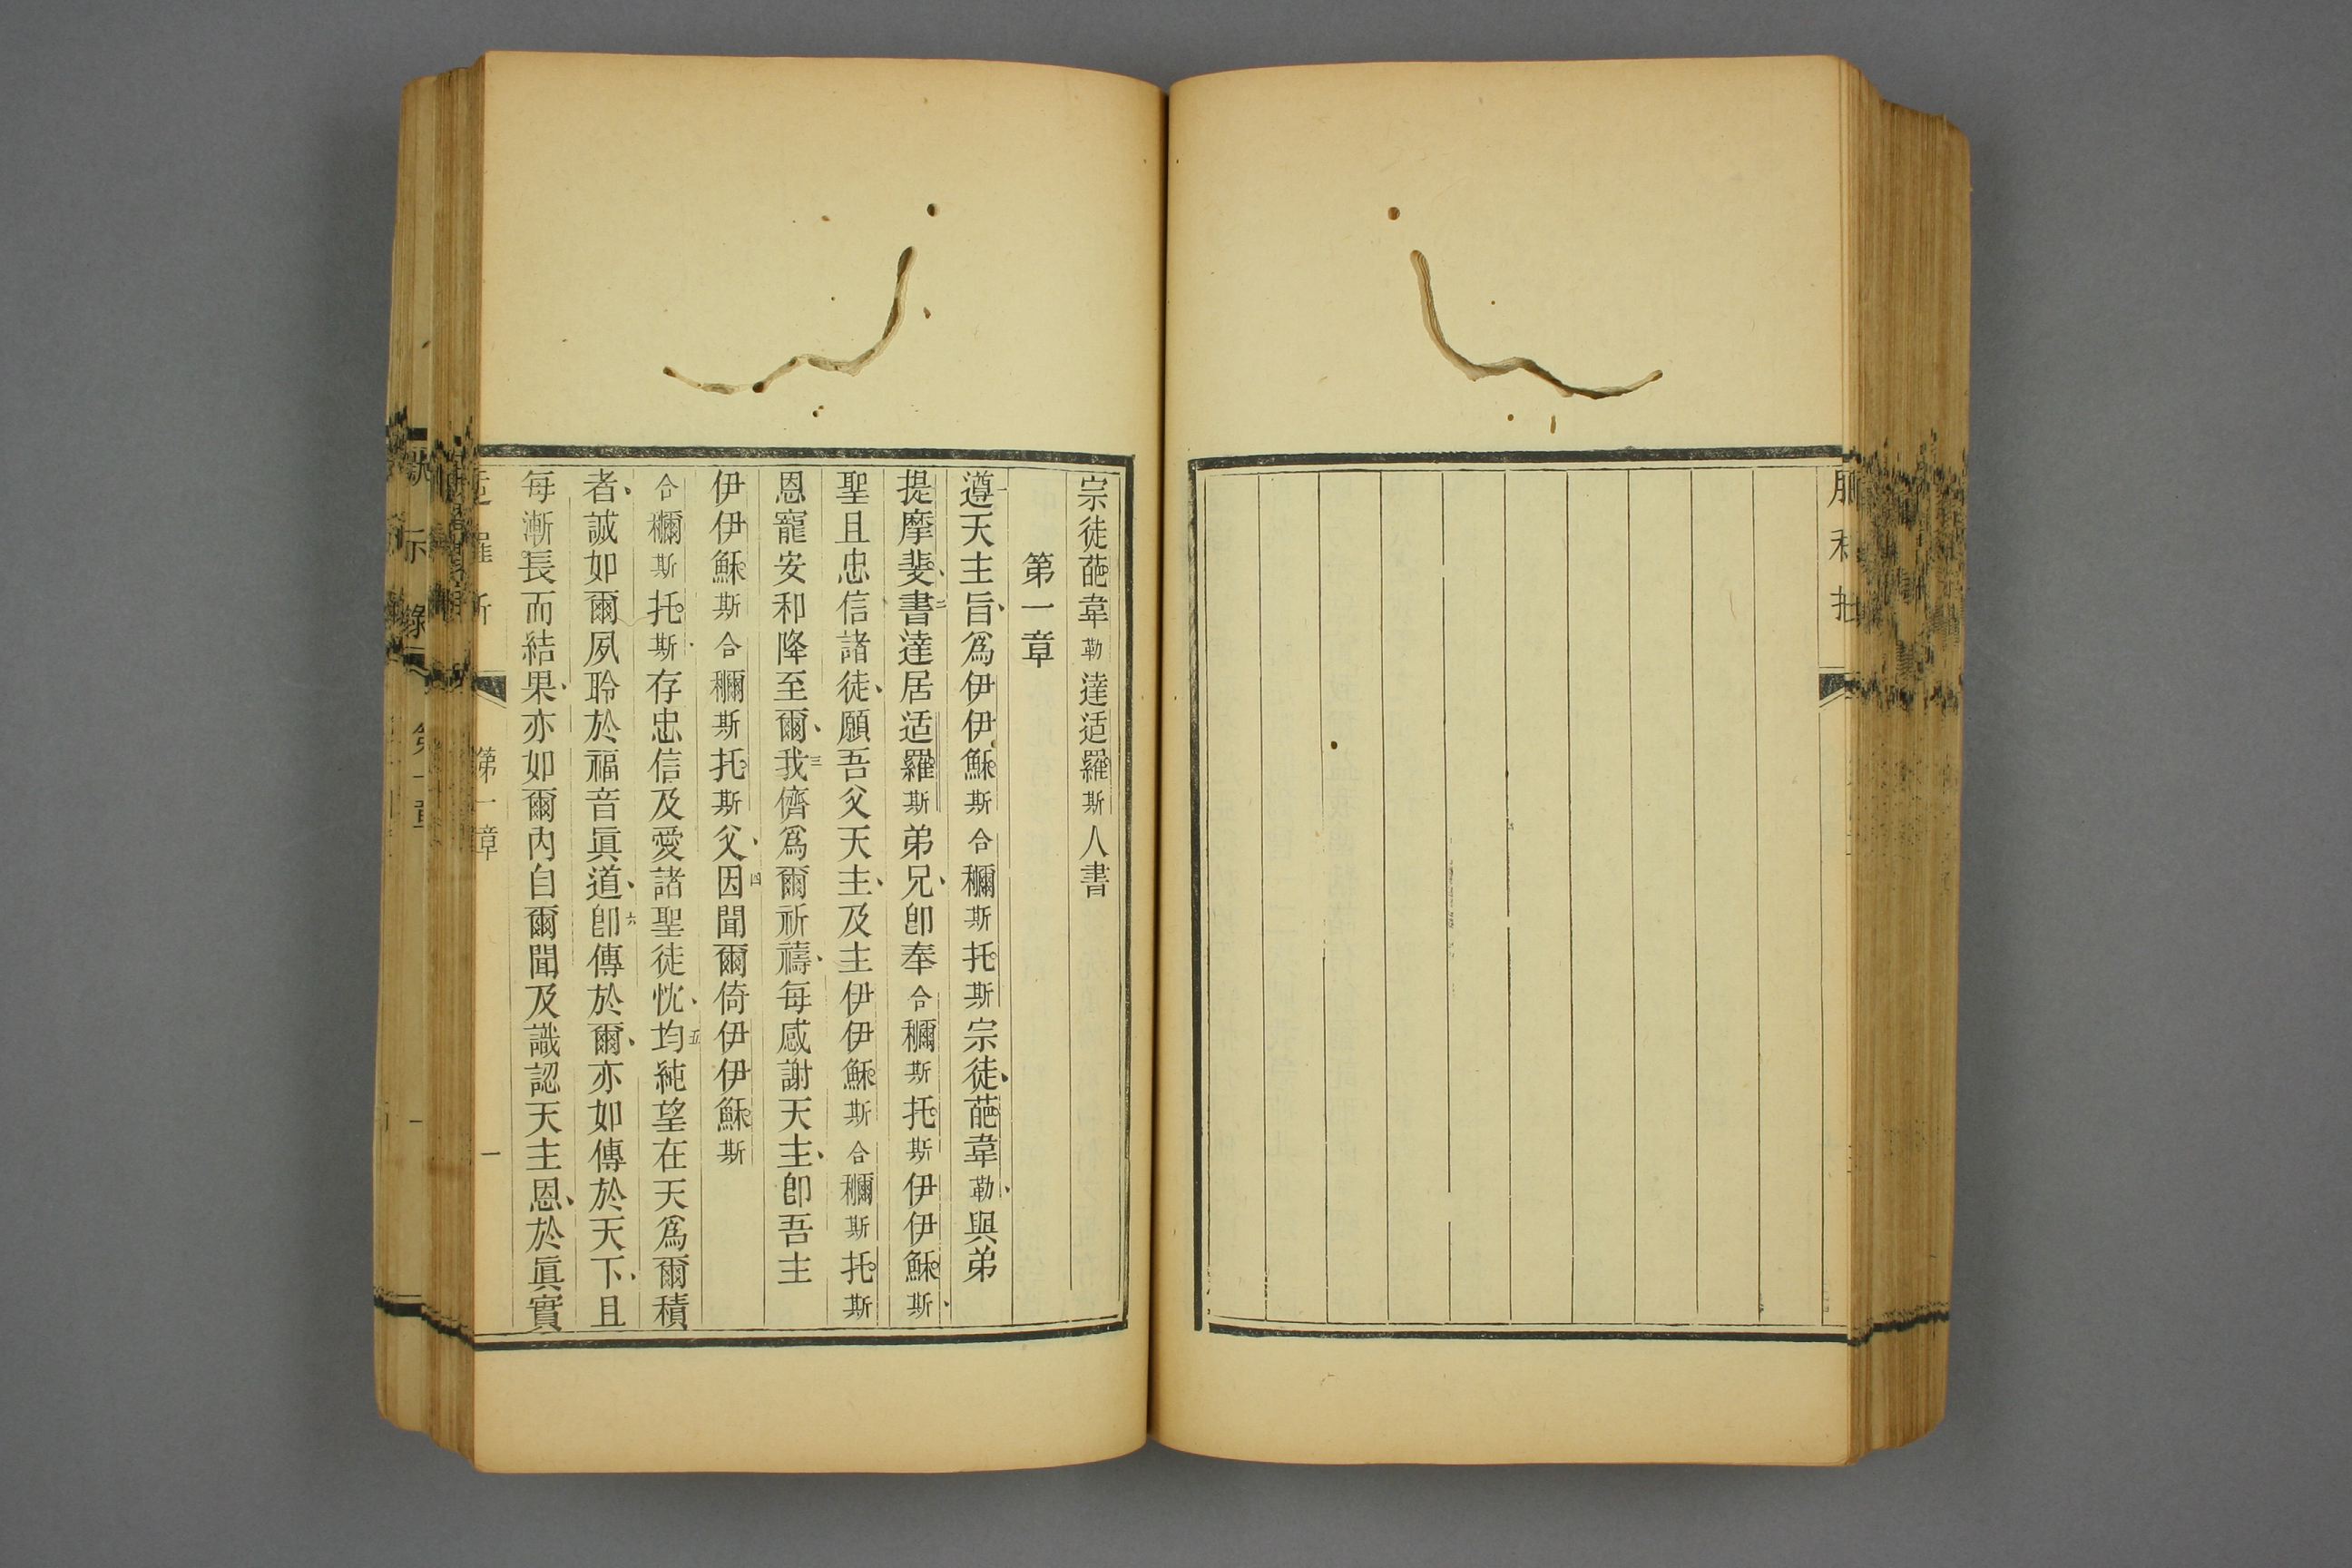 宗徒葩韋勒達适羅斯人書
第一章
一遵天主旨、爲伊伊穌斯合穪斯托斯宗徒、葩韋勒、與弟
提摩斐、二書達居适羅斯弟兄、卽奉合穪斯托斯伊伊穌斯、
聖且忠信諸徒、願吾父天主、及主伊伊穌斯合穪斯托斯
恩寵安和降至爾、三我儕爲爾祈禱、每感謝天主、卽吾主
伊伊穌斯合穪斯托斯父、四因聞爾倚伊伊穌斯
合穪斯托斯存忠信及愛諸聖徒忱、五均純望在天爲爾積
者、誠如爾夙聆於福音眞道、六卽傳於爾、亦如傳於天下、且
每漸長而結果、亦如爾內自爾聞及識認天主恩、於眞實
第一章
一